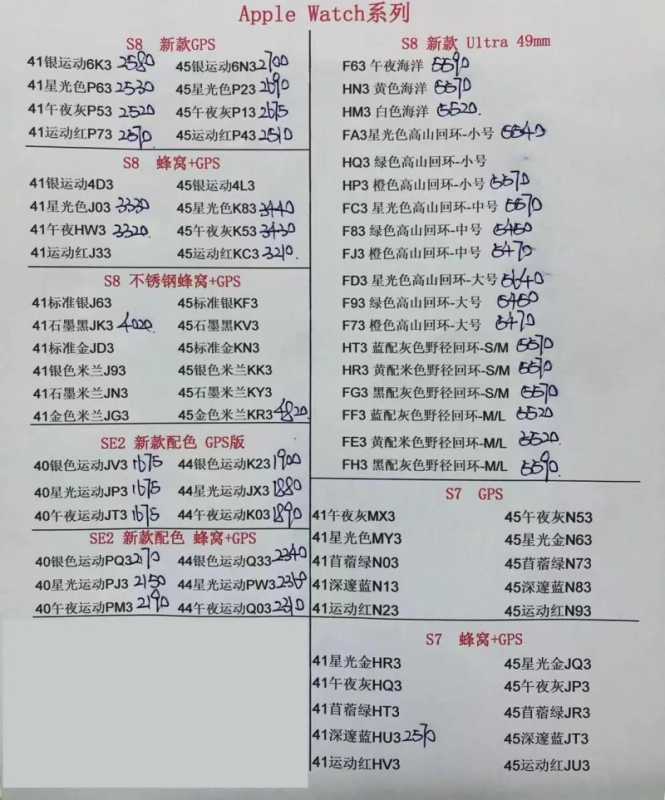 Apple Watch系列
S8 新款GPS
41银运动6K3 2580 45银运动6N3 2700
41星光色P63 2530 45星光色P23 2690
41午夜灰P53 2520 45午夜灰P13 2675
41运动红P73 2570 45运动红P43 2510
S8 蜂窝+GPS
41银运动4D3 45银运动4L3
41星光色J03 3330 45星光色K83 3440
41午夜HW3 3320. 45午夜灰K53 3430
41运动红J33 45运动红KC3 3210.
S8 不锈钢蜂窝+GPS
41标准银J63 45标准银KF3
41石墨黑JK3 4020. 45石墨黑KV3
41标准金JD3 45标准金KN3
41银色米兰J93 45银色米兰KK3
41石墨米兰JN3 45石墨米兰KY3
41金色米兰JG3 45金色米兰KR3 4820.
SE2 新款配色 GPS版
40银色运动JV3 1675 44银色运动K23 1900
40星光运动JP3 1675 44星光运动JX3 1880
40午夜运动JT3 1675 44午夜运动K03 1890
SE2 新款配色 蜂窝+GPS
40银色运动PQ3 2170 44银色运动Q33 2340
40星光运动PJ3 2150 44星光运动PW3 2360
40午夜运动PM3 2190 44午夜运动Q03 2310
S8 新款 Ultra 49mm
F63 午夜海洋 5590
HN3 黄色海洋 5570
HM3 白色海洋 5520.
FA3星光色高山回环-小号 5540
HQ3 绿色高山回环-小号
HP3 橙色高山回环-小号 5570
FC3 星光色高山回环-中号 5570
F83 绿色高山回环-中号 5450
FJ3 橙色高山回环-中号 5470
FD3 星光色高山回环-大号 5640
F93 绿色高山回环-大号 5450
F73 橙色高山回环-大号 5470
HT3 蓝配灰色野径回环-S/M 5570
HR3 黄配米色野径回环-S/M 5570
FG3 黑配灰色野径回环-S/M 5570
FF3 蓝配灰色野径回环-M/L 5520
FE3 黄配米色野径回环-M/L 5520.
FH3 黑配灰色野径回环-M/L 5590.
S7 GPS
41午夜灰MX3 45午夜灰N53
41星光色MY3 45星光金N63
41苜蓿绿N03 45苜蓿绿N73
41深邃蓝N13 45深邃蓝N83
41运动红N23 45运动红N93
S7 蜂窝+GPS
41星光金HR3 45星光金JQ3
41午夜灰HQ3 45午夜灰JP3
41苜蓿绿HT3 45苜蓿绿JR3
41深邃蓝HU3 2570 45深邃蓝JT3
41运动红HV3 45运动红JU3